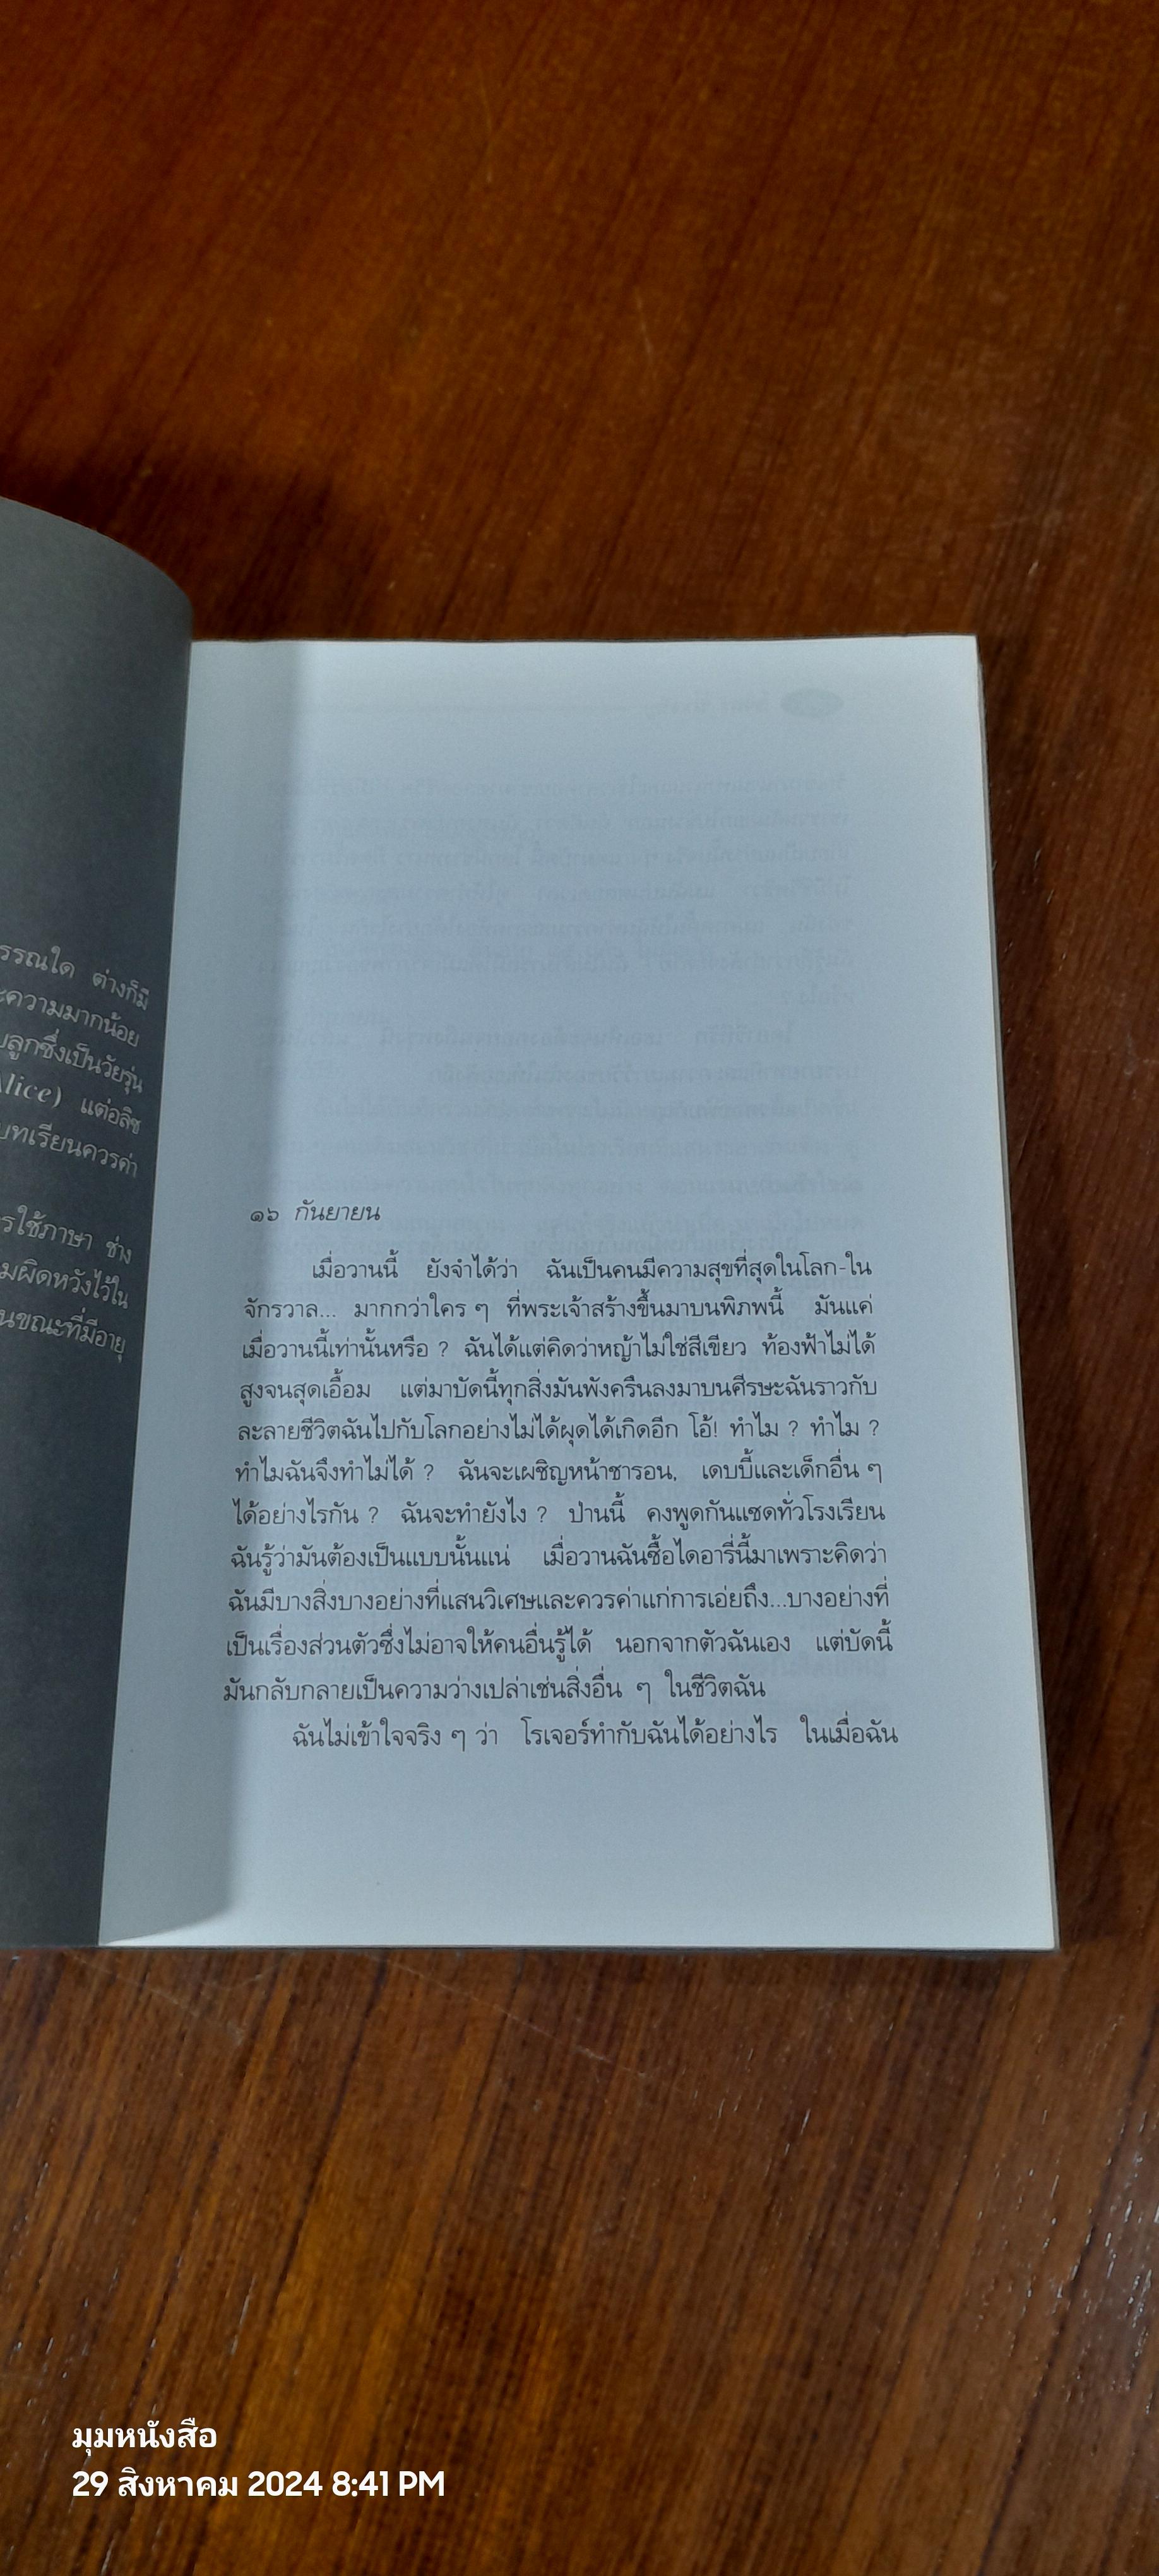 ต่างก็มี
ความมากน้อย
ลูกซึ่งเป็นวัยรุ่น
lice) แต่อลิซ
ทเรียนควรค่า
รใช้ภาษา ช่าง
มผิดหวังไว้ใน
นขณะที่มีอายุ
๑๖ กันยายน
เมื่อวานนี้ ยังจำได้ว่า ฉันเป็นคนมีความสุขที่สุดในโลก-ใน
จักรวาล... มากกว่าใคร ๆ ที่พระเจ้าสร้างขึ้นมาบนพิภพนี้ มันแค่
เมื่อวานนี้เท่านั้นหรือ ? ฉันได้แต่คิดว่าหญ้าไม่ใช่สีเขียว ท้องฟ้าไม่ได้
สูงจนสุดเอื้อม แต่มาบัดนี้ทุกสิ่งมันพังครืนลงมาบนศีรษะฉันราวกับ
ละลายชีวิตฉันไปกับโลกอย่างไม่ได้ผุดได้เกิดอีก โอ้! ทำไม ? ทำไม ?
ทำไมฉันจึงทำไม่ได้ ? ฉันจะเผชิญหน้าชารอน, เดบบี้และเด็กอื่น ๆ
ได้อย่างไรกัน ? ฉันจะทำยังไง ? ป่านนี้ คงพูดกันแซดทั่วโรงเรียน
ฉันรู้ว่ามันต้องเป็นแบบนั้นแน่ เมื่อวานฉันซื้อไดอารี่นี้มาเพราะคิดว่า
ฉันมีบางสิ่งบางอย่างที่แสนวิเศษและควรค่าแก่การเอ่ยถึง...บางอย่างที่
เป็นเรื่องส่วนตัวซึ่งไม่อาจให้คนอื่นรู้ได้ นอกจากตัวฉันเอง แต่บัดนี้
มันกลับกลายเป็นความว่างเปล่าเช่นสิ่งอื่น ๆ ในชีวิตฉัน
ฉันไม่เข้าใจจริง ๆ ว่า โรเจอร์ทำกับฉันได้อย่างไร ในเมื่อฉัน
มุมหนังสือ
29 สิงหาคม 2024 8:41 PM